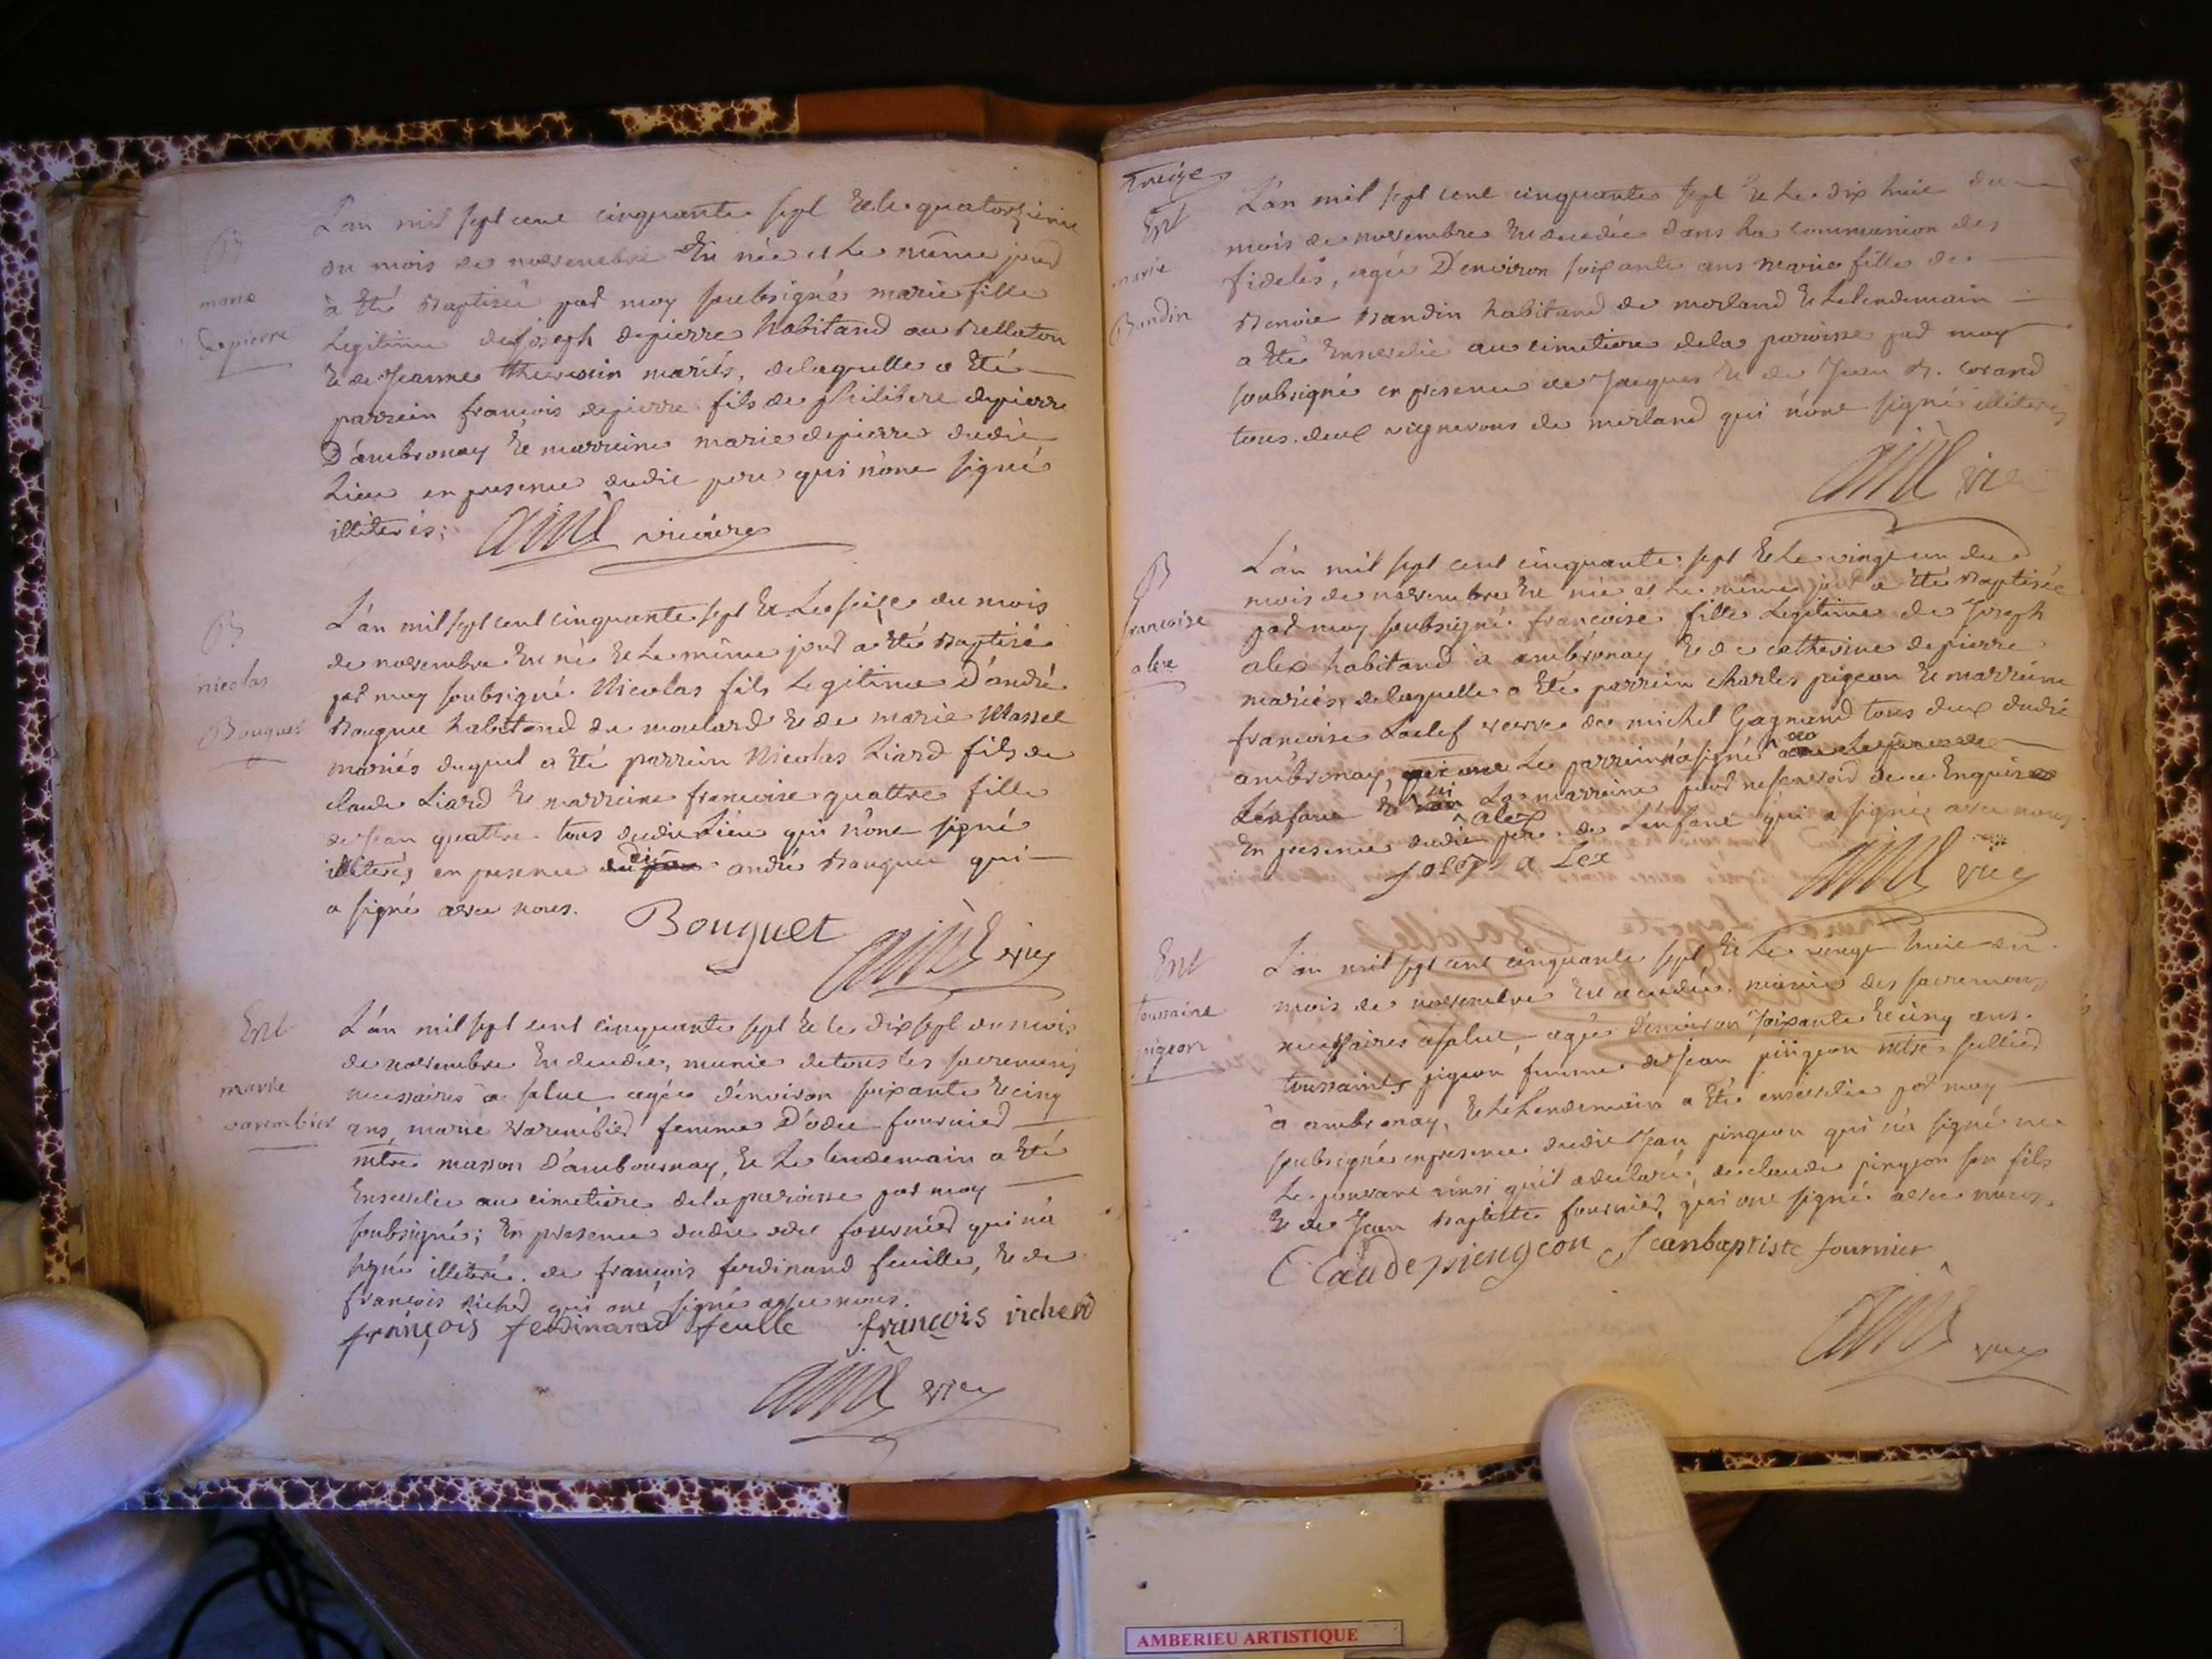 B
marie
depierre
L'an mil sept cent cinquante sept Et le quatorzieme
du mois de novembre Est née et Le même jour
à Eté Baptisée par moy soubsigné marie fille
Legitime de joseph depierre habitand au Bellaton
Et de Jeanne mariés, delaquelle a Eté
parrein francois depierre fils de philibert depierre
D'ambronay Et marreine marie depierre dudit
Lieu en presence dudit pere qui n'ont signé
illiterés;
aimé vicaire
B
nicolas
Bouquet
L'an mil sept cent cinquante sept Et Le seize du mois
de novembre Est né Et Le même jour a Eté Baptisé
par moy soubsigné Nicolas fils Legitime D'andré
Bouquet habitand du moulard Et de marie Massel
mariés duquel a Eté parrein Nicolas Liard fils de
claude Liard Et marreine francoise quattre fille
de Jean quattre tous dudit Lieu qui n'ont signé
illiterés en presence dudit andré Bouquet qui
a signé avec nous.
Bouquet
aimé vic
Ent
marie
varembier
L'an mil sept cent cinquante sept Et le dix sept du mois
de novembre Est decedée, munie de tous les sacrements
necessaires a salut agée d'environ soixante Et cinq
ans, marie Varembier femme D'odet fournier
mtre masson d'ambournay, Et Le lendemain a Eté
Ensevelie au cimetiere de la paroisse par moy
soubsigné; En presence dudit odet fournier qui n'a
signé illiteré. de françois ferdinand feuille, Et de
françois richerd qui ont signés avec nous.
françois ferdinand feulle françois richerd
aimé vic
treize
Ent
marie
Bandin
L'an mil sept cent cinquante sept Et Le dix huit du
mois de novembre Est decedée dans La communion des
fideles, agée D'environ soixante ans marie fille de
Benoit Bandin habitand de morland Et Le lendemain
a Eté Ensevelie au cimetiere de la paroisse par moy
soubsigné en presence de Jacques Et de Jean B. corand
tous deux vignerons de morland qui n'ont signé illiterés
aimé vic
B
francoise
alex
L'an mil sept cent cinquante sept Et Le vingt un du
mois de novembre Est née et Le même jour a Eté Baptisée
par moy soubsigné francoise fille Legitime de Joseph
alex habitand à ambronay Et de catherine depierre
mariés, delaquelle a Eté parrein charles pigeon Et marreine
francoise veuve de michel Gagnand tous deux dudit
ambronay, Le parrein n'a signé
L'enfant La marreine pour ne sçavoir de ce Enquise
En presence dudit alex pere de L'enfant qui a signé avec nous
joseph a Lex
aimé vic
Ent
toussaine
pigeon
L'an mil sept cent cinquante sept Et Le vingt huit du
mois de novembre Est decedée munie des sacremens
necessaires a salut, agée d'environ soixante Et cinq ans.
toussainte pigeon femme de Jean pingeon mtre sellier
à ambronay, Et Le Lendemain a Eté ensevelie par moy
soubsigné en presence dudit Jean pingeon qui n'a signé ne
Le pouvant ainsi qu'il a declaré, de claude pingeon son fils
Et de Jean Baptiste fournier, qui ont signé avec nous.
Claude piengeon Jeanbaptiste fournier
aimé vic
AMBERIEU ARTISTIQUE